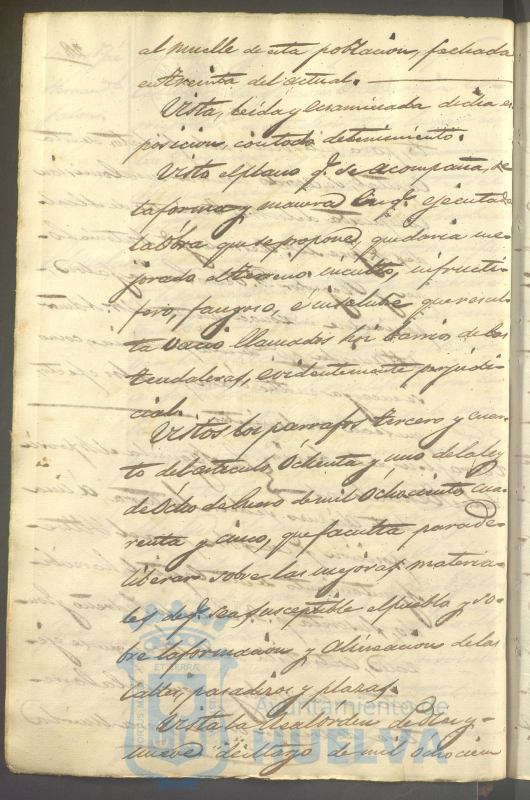 al muelle de esta poblacion, fechada
en treinta del actual.
Vista, leida y examinada dicha es
posicion, con todo detenimiento.
Visto el plano q.e se acompaña, de
la forma y manera en q.e ejecutada
la Obra que se propone, quedaria me-
jorado el terreno inculto, infructi-
fero, fangoso, é insalubre que resul-
ta vacio llamados hoi barrio de las
tendaleras, evidentemente perjudi-
cial.
Vistos los parrafos tercero y cuar-
to del articulo Ochenta y uno de la ley
de Ocho de Enero de mil Ochocientos cua-
renta y cinco, que faculta para de-
liberar sobre las mejoras materia-
les de q.e sea susceptible el pueblo y so-
bre la formacion y alineacion de las
calles, pasadizos y plazas.
Vista la Real orden de Diez y
nueve de Mayo de mil ochocien
Ayuntamiento de
HUELVA